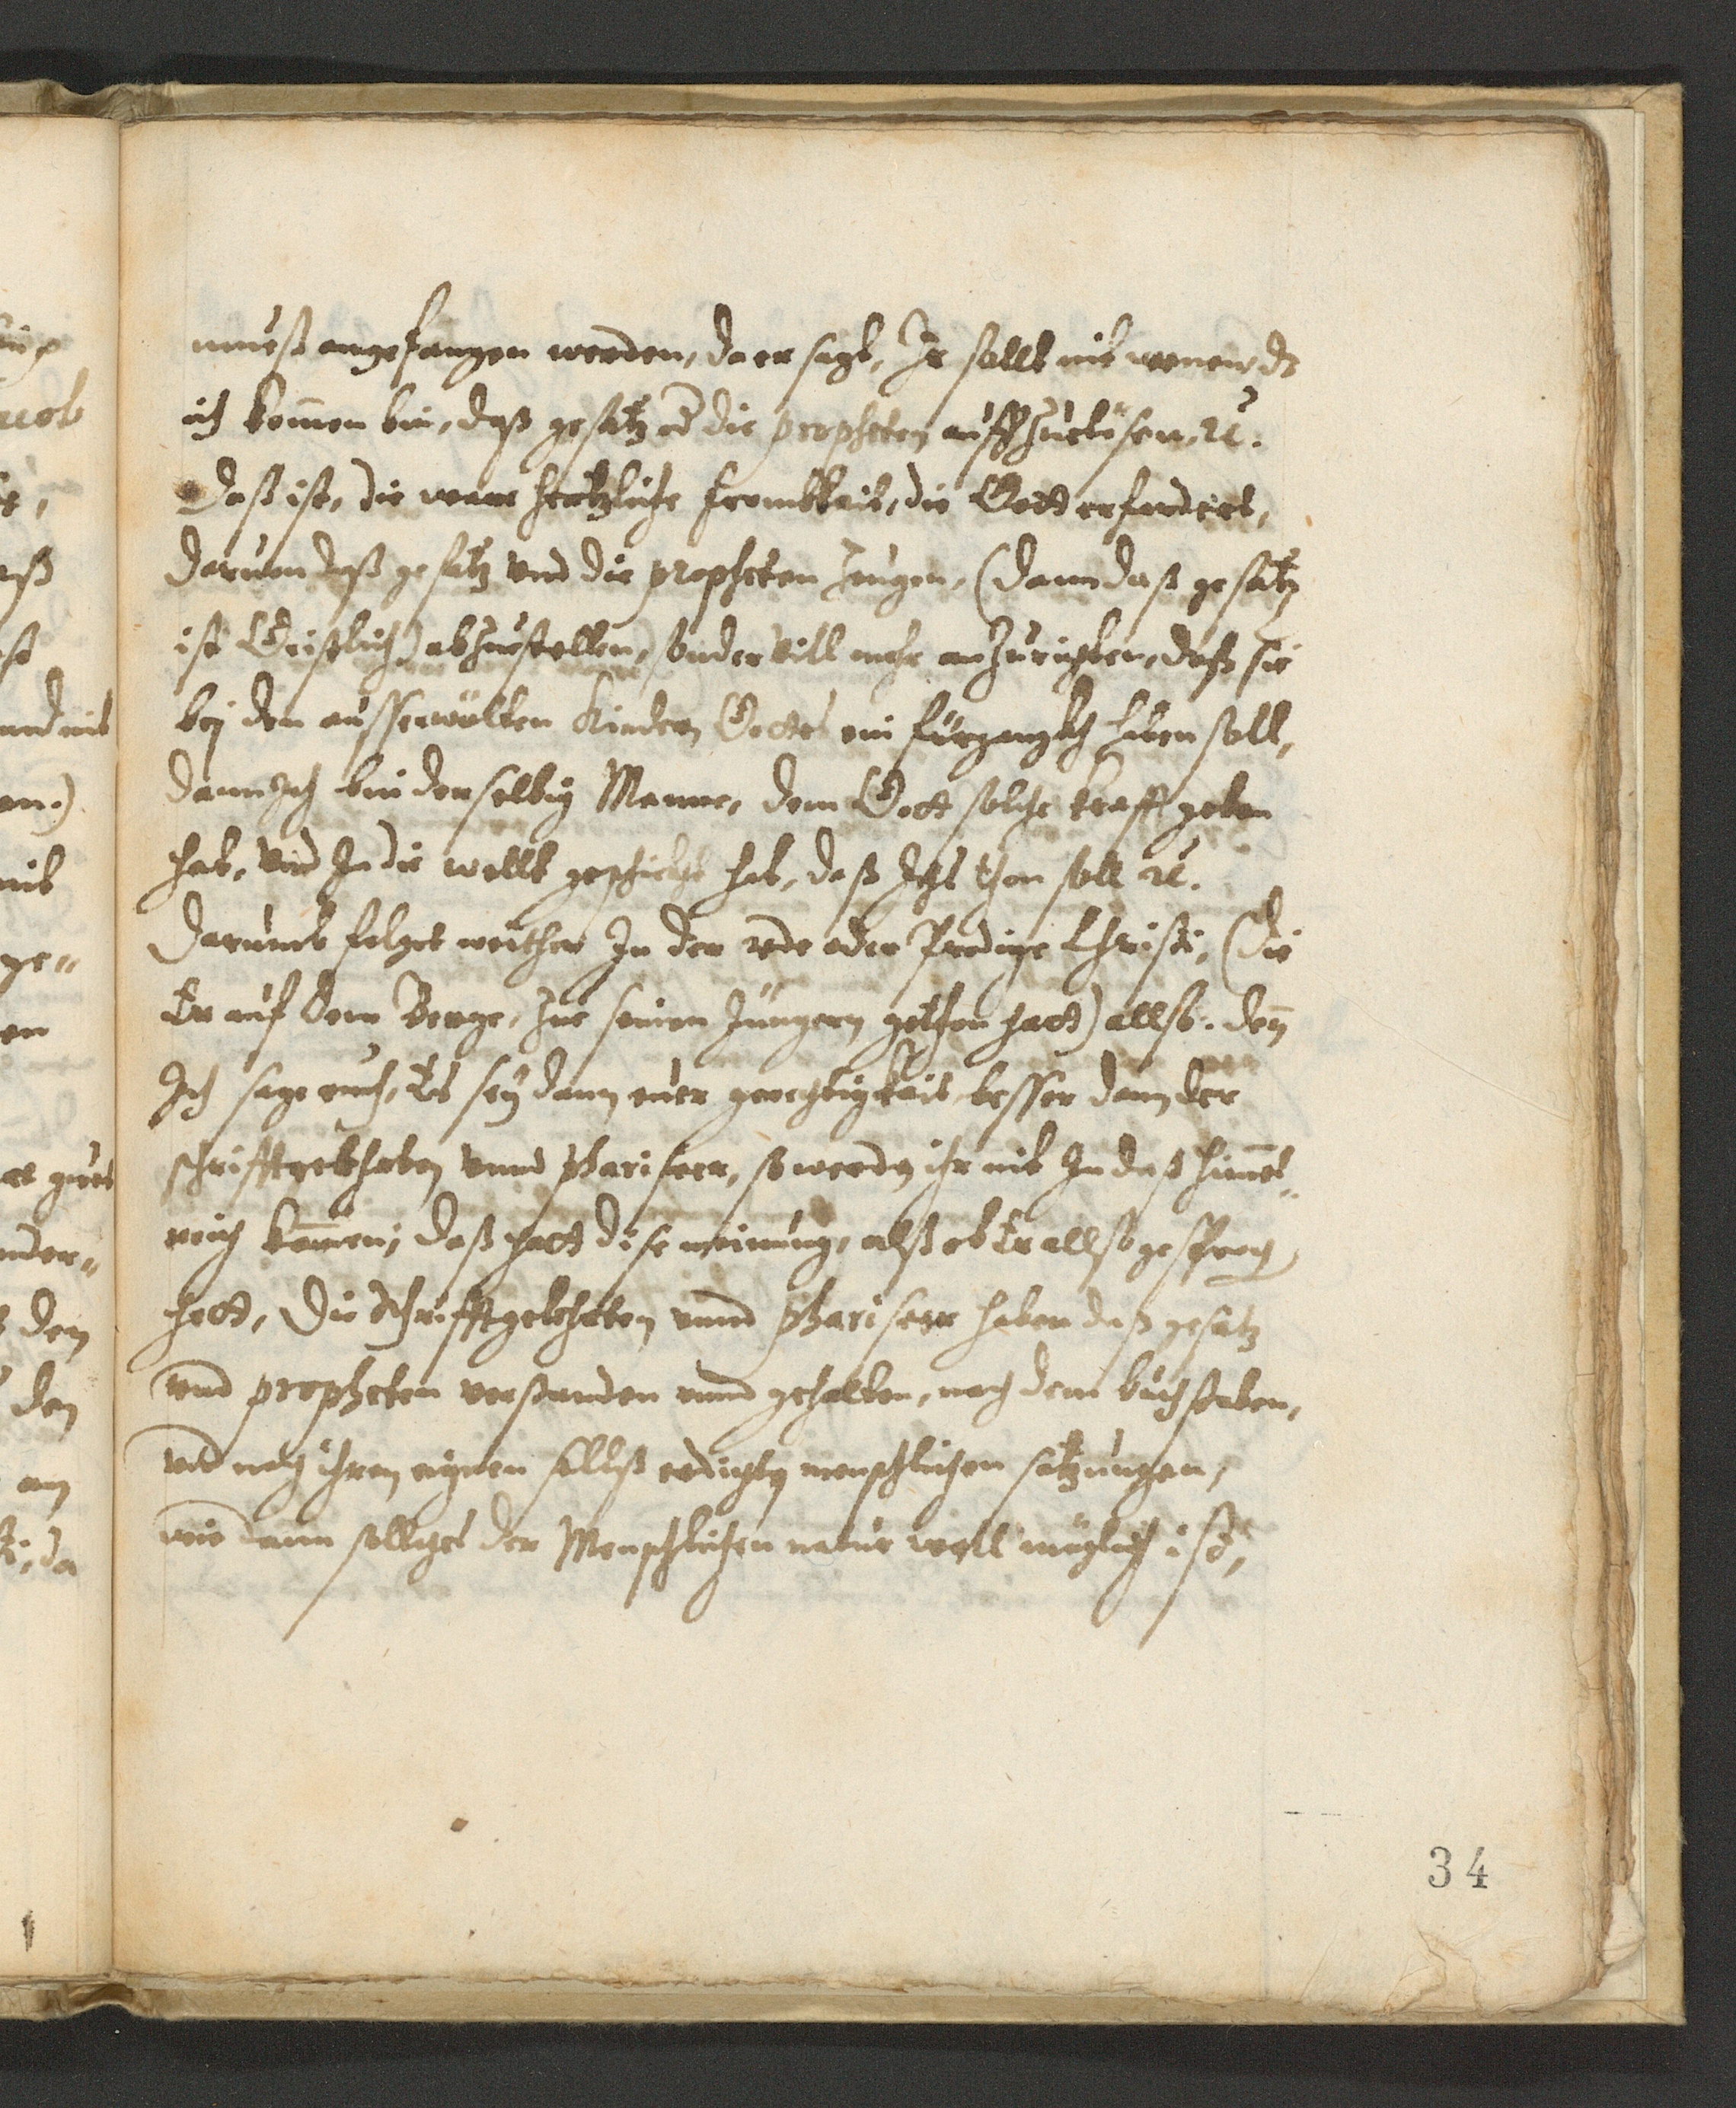 mueß angefangen werden, da er sagt, Ir sollt nit wenen, ds
ich kom̃en bin, daß gesätz od die propheten auffzuelösen, ꝛc.
Daß ist, die ware hertzliche frombkait, die Gott erfordert,
daruon daß gesätz vnd die propheten zeugen, (dann daß gesätz
ist Geistlich) abzuestellen, sonder vill mehr anzurichten, daß sie
bej den ausserwölten Kindern Gottes ein fürgang haben soll,
dann Ich bin derselbig Manne, dem Gott solche krafft geben
hab, vnd In die wellt geschickht hab, daß Ichs thon soll ꝛc.
Darumb folget weither In der rede oder Predige Christi, (die
Er auf dem Berge, zue seinen Jüngern gethon hatt) allso. den̄
Ich sage euch, Es seӱ dann euer gerechtigkait, besser dann der
schrifftgelehrten vnnd phariseer, so werdn ihr nit In daß himel„
reich kom̃en; daß hatt dise meinung, alß ob Er allso gesproch
hett, Die schrifftgelehrten vnnd phariseer haben daß gesätz
vnd propheten verstanden vnnd gehalten, nach dem buchstaben,
vnd nach ihren eignen selbst erdichtn menschlichen satzungen,
wie dann sollches der Menschlichen natur woll müglich ist,
34
ein
acob
aß
ist
und nit
en.)
nit
ge„
en
gues
nder„
den
den
an
da